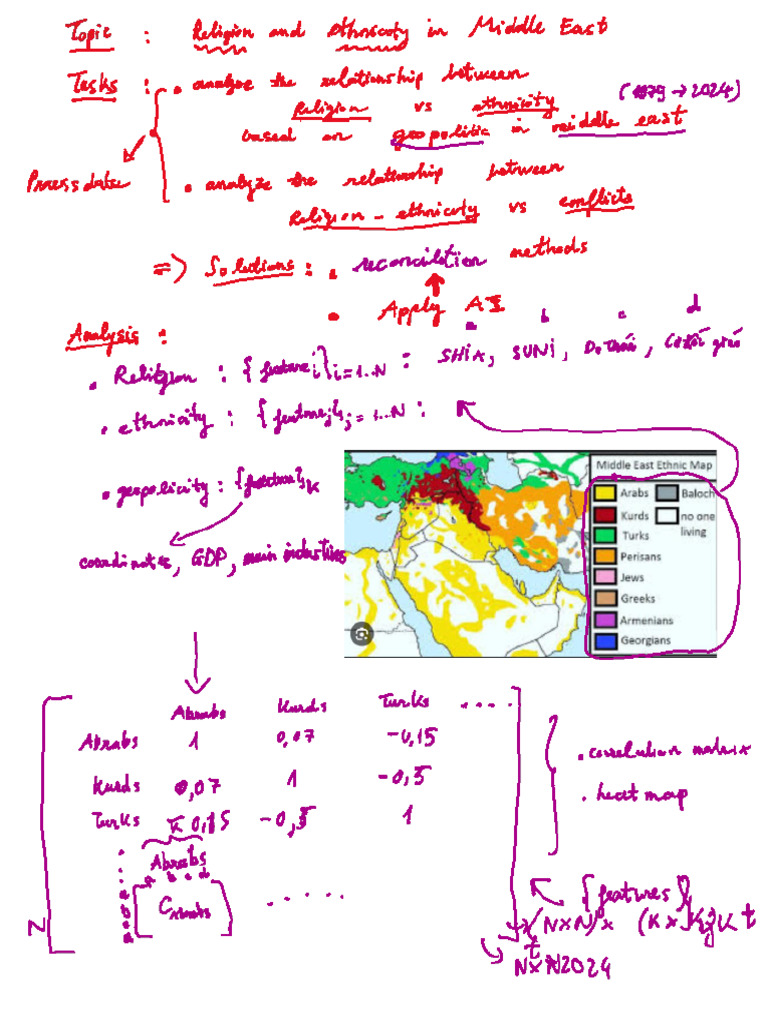 Topic : Religion and ethnicity in Middle East
Tasks : . analyze the relationship between
Religion vs ethnicity (1979 → 2024)
based on geopolitic in middle east
Process data
. analyze the relationship between
Religion - ethnicity vs conflicts
=> Solutions : . reconcilation methods
. Apply AI
Analysis :
a b c d
. Religion : {feature i} i=1..N : SHIA, SUNI, Do Thái, Cơ đốc giáo
. ethnicity : {feature j} j=1..N :
. geopolicity : {feature} K
coordinates, GDP, main industries
Middle East Ethnic Map
Arabs Baloch
Kurds no one living
Turks
Perisans
Jews
Greeks
Armenians
Georgians
Abrabs Kurds Turks ....
Abrabs 1 0,07 -0,15
Kurds 0,07 1 -0,5
Turks 0,15 -0,5 1
. correlation matrix
. heat map
Abrabs
a b c d
a
b
c
d
C Arabs
.....
N
{features}
(NxN) x (Kx
t
NxN2024